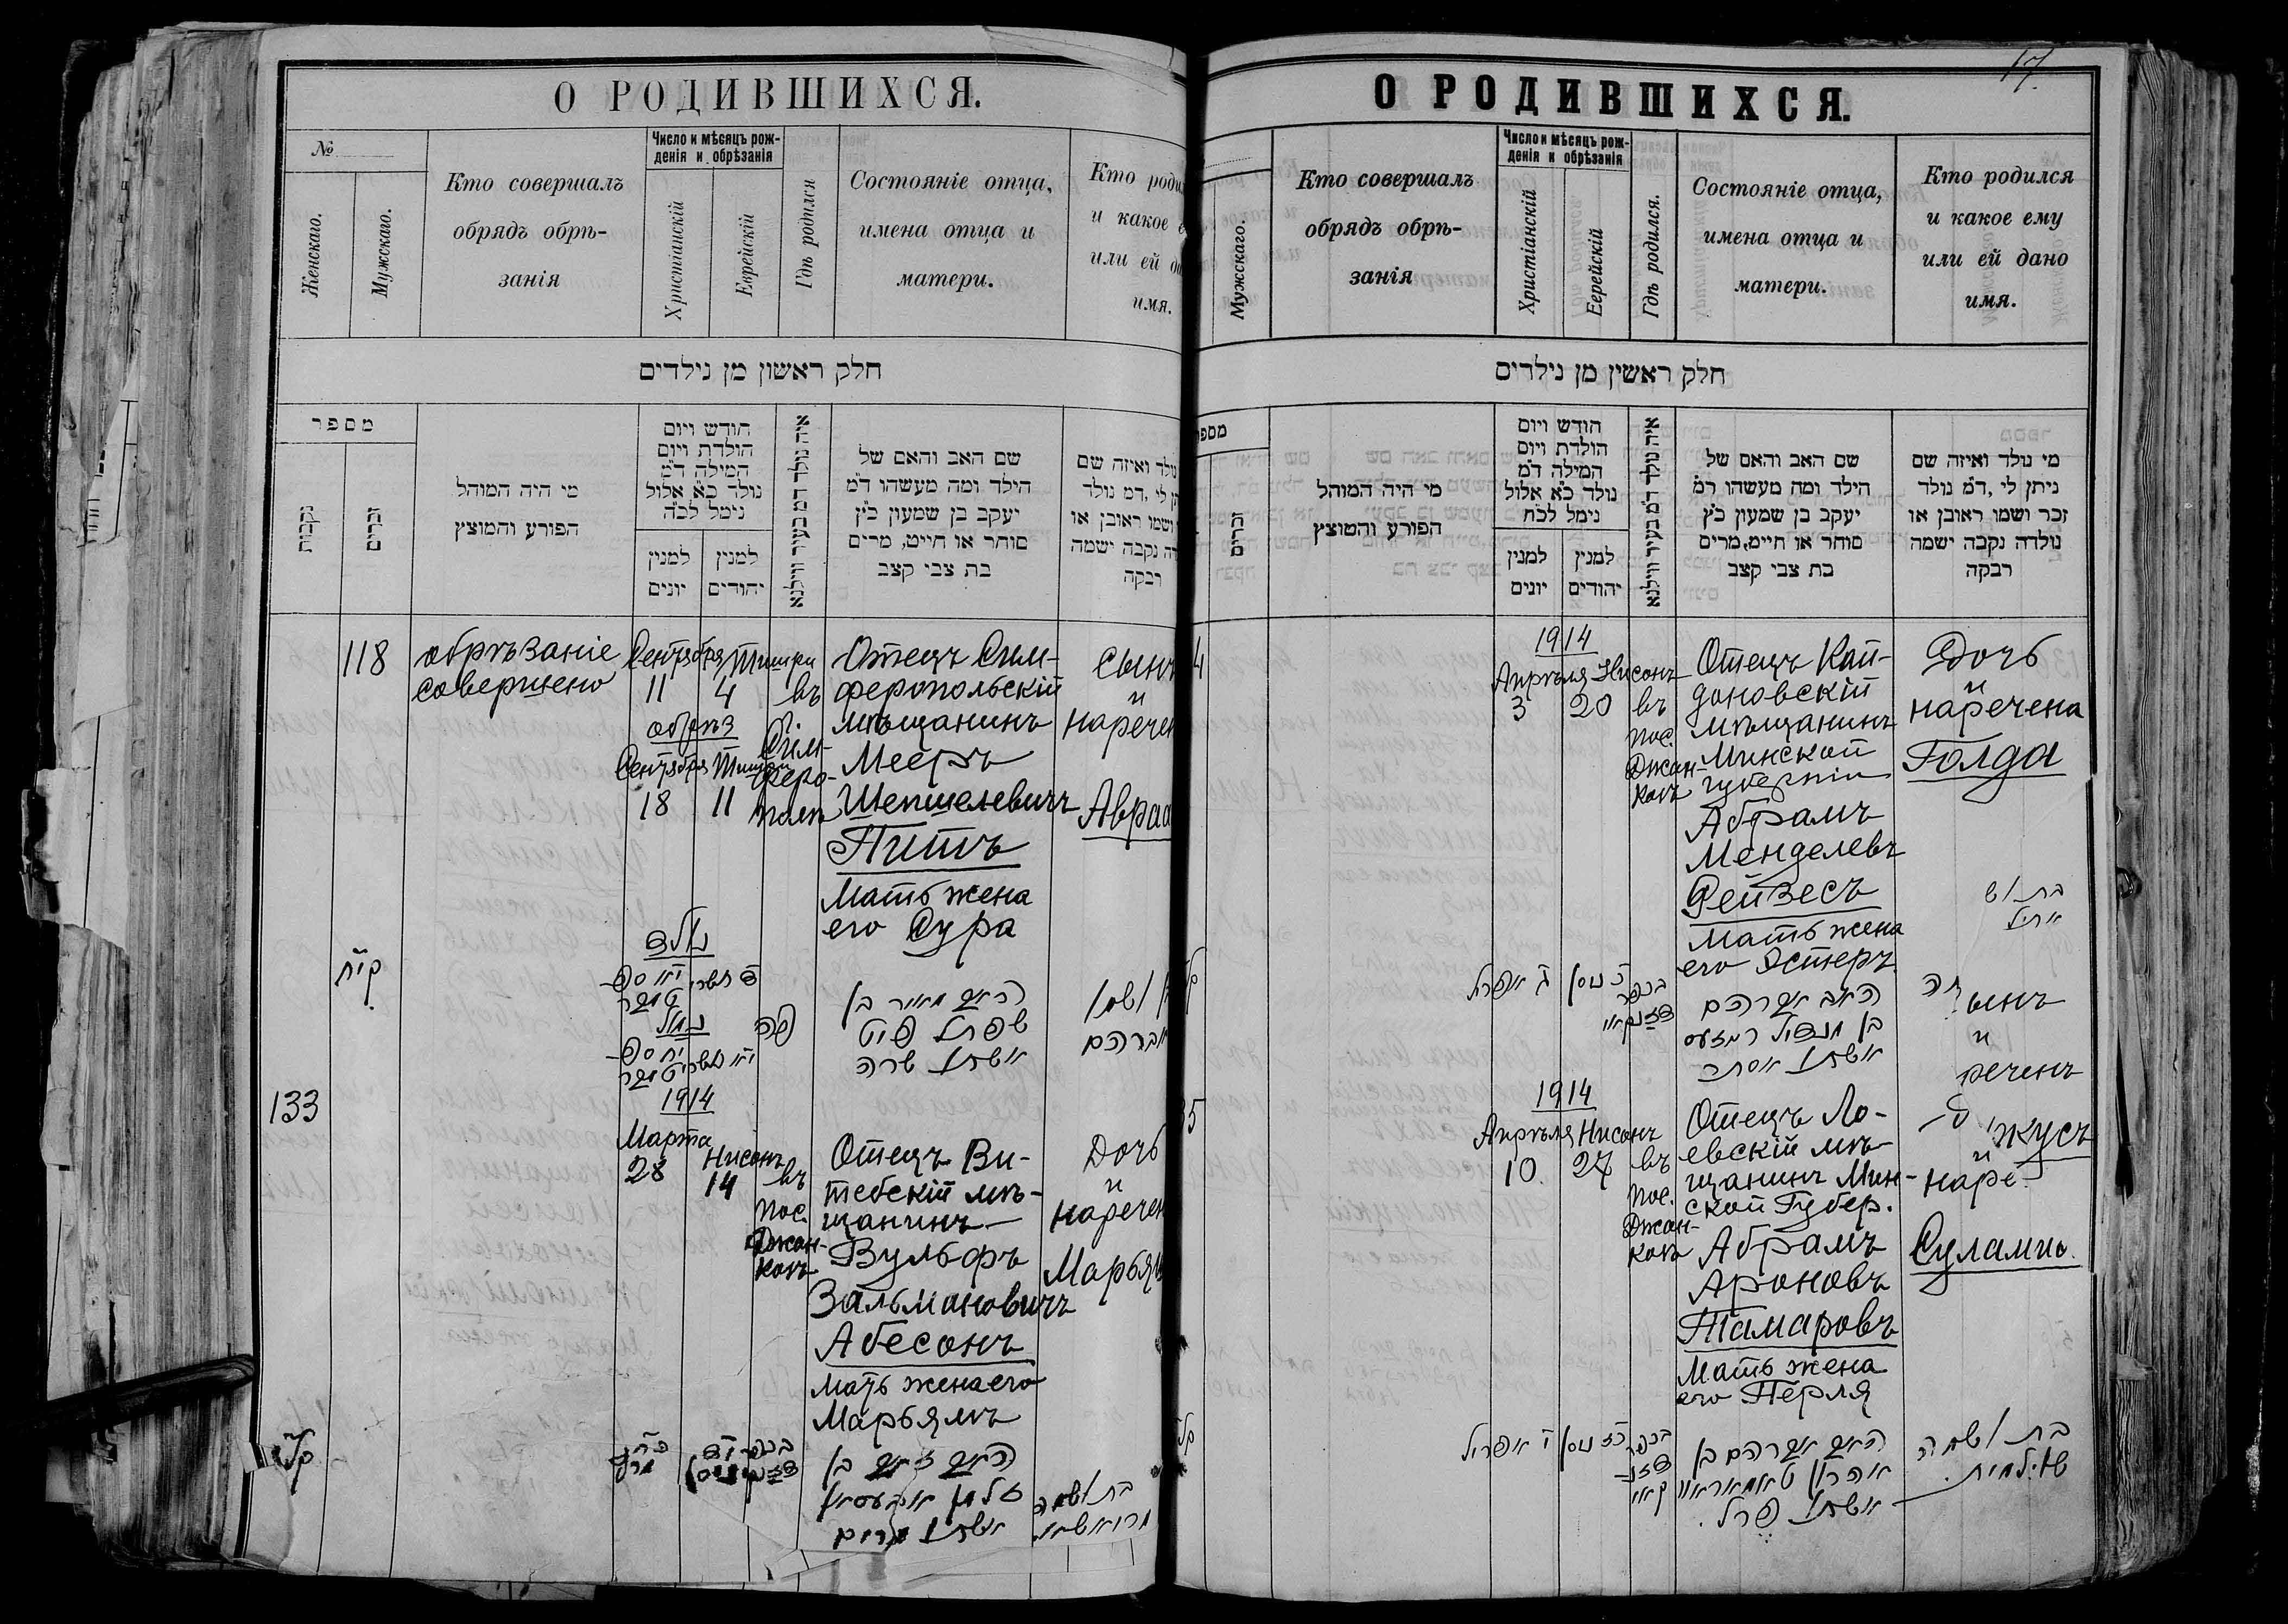 О РОДИВШИХСЯ.
№
Женскаго.
Мужскаго.
Кто совершалъ
обрядъ обрѣ-
занія
Число и мѣсяцъ рож-
денія и обрѣзанія
Христіанскій
Еврейскій
Гдѣ родился
Состояніе отца,
имена отца и
матери.
Кто роди
и какое
или ей
имя.
חלק ראשון מן נילדים
מספר
נקבות
זכרים
מי היה המוהל
הפורע והמוצץ
חודש ויום
הולדת ויום
המילה ד״מ
נולד כ״א אלול
נימל לכ״ח
למנין
יונים
למנין
יהודים
איה נולד ד״מ בעיר ווילנא
שם האב והאם של
הילד ומה מעשהו ד״מ
יעקב בן שמעון כ״ץ
סוחר או חייט, מרים
בת צבי קצב
ואיזה שם
לי, ד״מ נולד
ושמו ראובן או
נקבה ישמה
רבקה
118
обрѣзаніе
совершено
Сентября Тишри
11 4
обрѣз
Сентября Тишри
18 11
въ
г.
Сим-
феро-
полѣ
Отецъ Сим-
феропольскій
мѣщанинъ
Мееръ
Шепшелевичъ
Питъ
Мать жена
его Сура
Сынъ
и
нарече
Авраа
קי״ח
נולד
נימול
פה
האב מאיר בן
שפתל פיט
אשתו שרה
ושמו
אברהם
133
1914
Марта
28
Нисонъ
14
въ
пос.
Джан-
коѣ
Отецъ Ви-
тебскій мѣ-
щанинъ
Вульфъ
Зальмановичъ
Абесонъ
Мать жена его
Марьямъ
Дочь
и
наречен
Марьям
האב זאב בן
זלמן אבעסאן
אשתו מרים
בת ושמה
О РОДИВШИХСЯ.
17.
Мужскаго.
Кто совершалъ
обрядъ обрѣ-
занія
Число и мѣсяцъ рож-
денія и обрѣзанія
Христіанскій
Еврейскій
Гдѣ родился.
Состояніе отца,
имена отца и
матери.
Кто родился
и какое ему
или ей дано
имя.
חלק ראשין מן נילדים
זכרים
מי היה המוהל
הפורע והמוצץ
חודש ויום
הולדת ויום
המילה ד״מ
נולד כ״א אלול
נימל לכ״ח
למנין
יונים
למנין
יהודים
איה נולד ד״מ בעיר ווילנא
שם האב והאם של
הילד ומה מעשהו ד״מ
יעקב בן שמעון כ״ץ
סוחר או חייט, מרים
בת צבי קצב
מי נולד ואיזה שם
ניתן לי, ד״מ נולד
זכר ושמו ראובן או
נולדה נקבה ישמה
רבקה
4
1914
Апрѣля Нисонъ
3 20
въ
пос.
Джан-
коѣ
Отецъ Кай-
дановскій
мѣщанинъ
Минской
губерніи
Абрамъ
Менделевъ
Рейзесъ
Мать жена
его Эстеръ
Дочь
и
наречена
Голда
ג׳ אפריל
כ׳ ניסן
בכפר
האב אברהם
בן מנדיל רייזעס
אשתו אסתר
ынъ
и
реченъ
5
1914
Апрѣля Нисонъ
10. 27
въ
пос.
Джан-
коѣ
Отецъ Ло-
евскій мѣ-
щанинъ Мин-
ской Губер.
Абрамъ
Ароновъ
Тамаровъ
Мать жена
его Перля
и
наре-
Суламиѳ.
י׳ אפריל
כ״ז ניסן
בכפר
האב אברהם בן
אהרן טאמאראוו
אשתו פרל.
בת ושמה
שולמית.